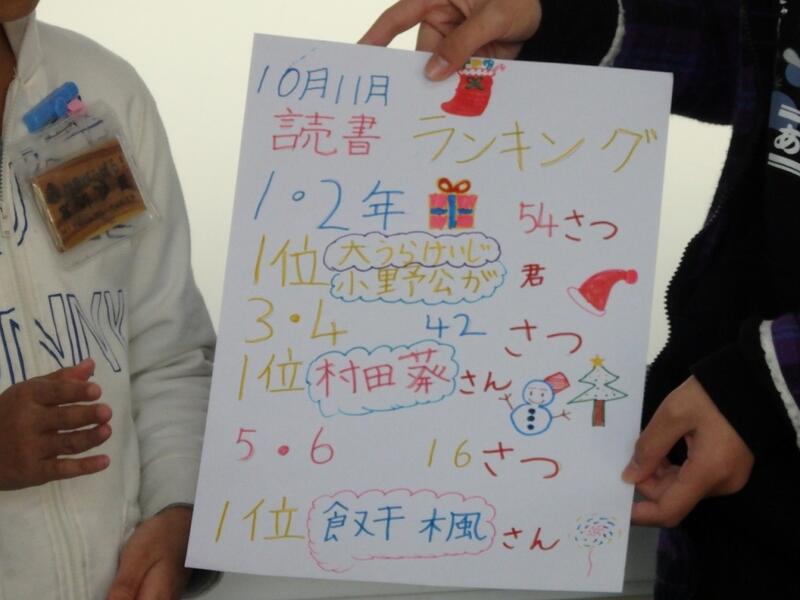 10月11月
読書 ランキング
1・2年 54さつ
1位 大うらけいじ
小野公が 君
3・4 42 さつ
1位 村田 葵さん
5・6 16さつ
1位 飯干 楓 さん
あ